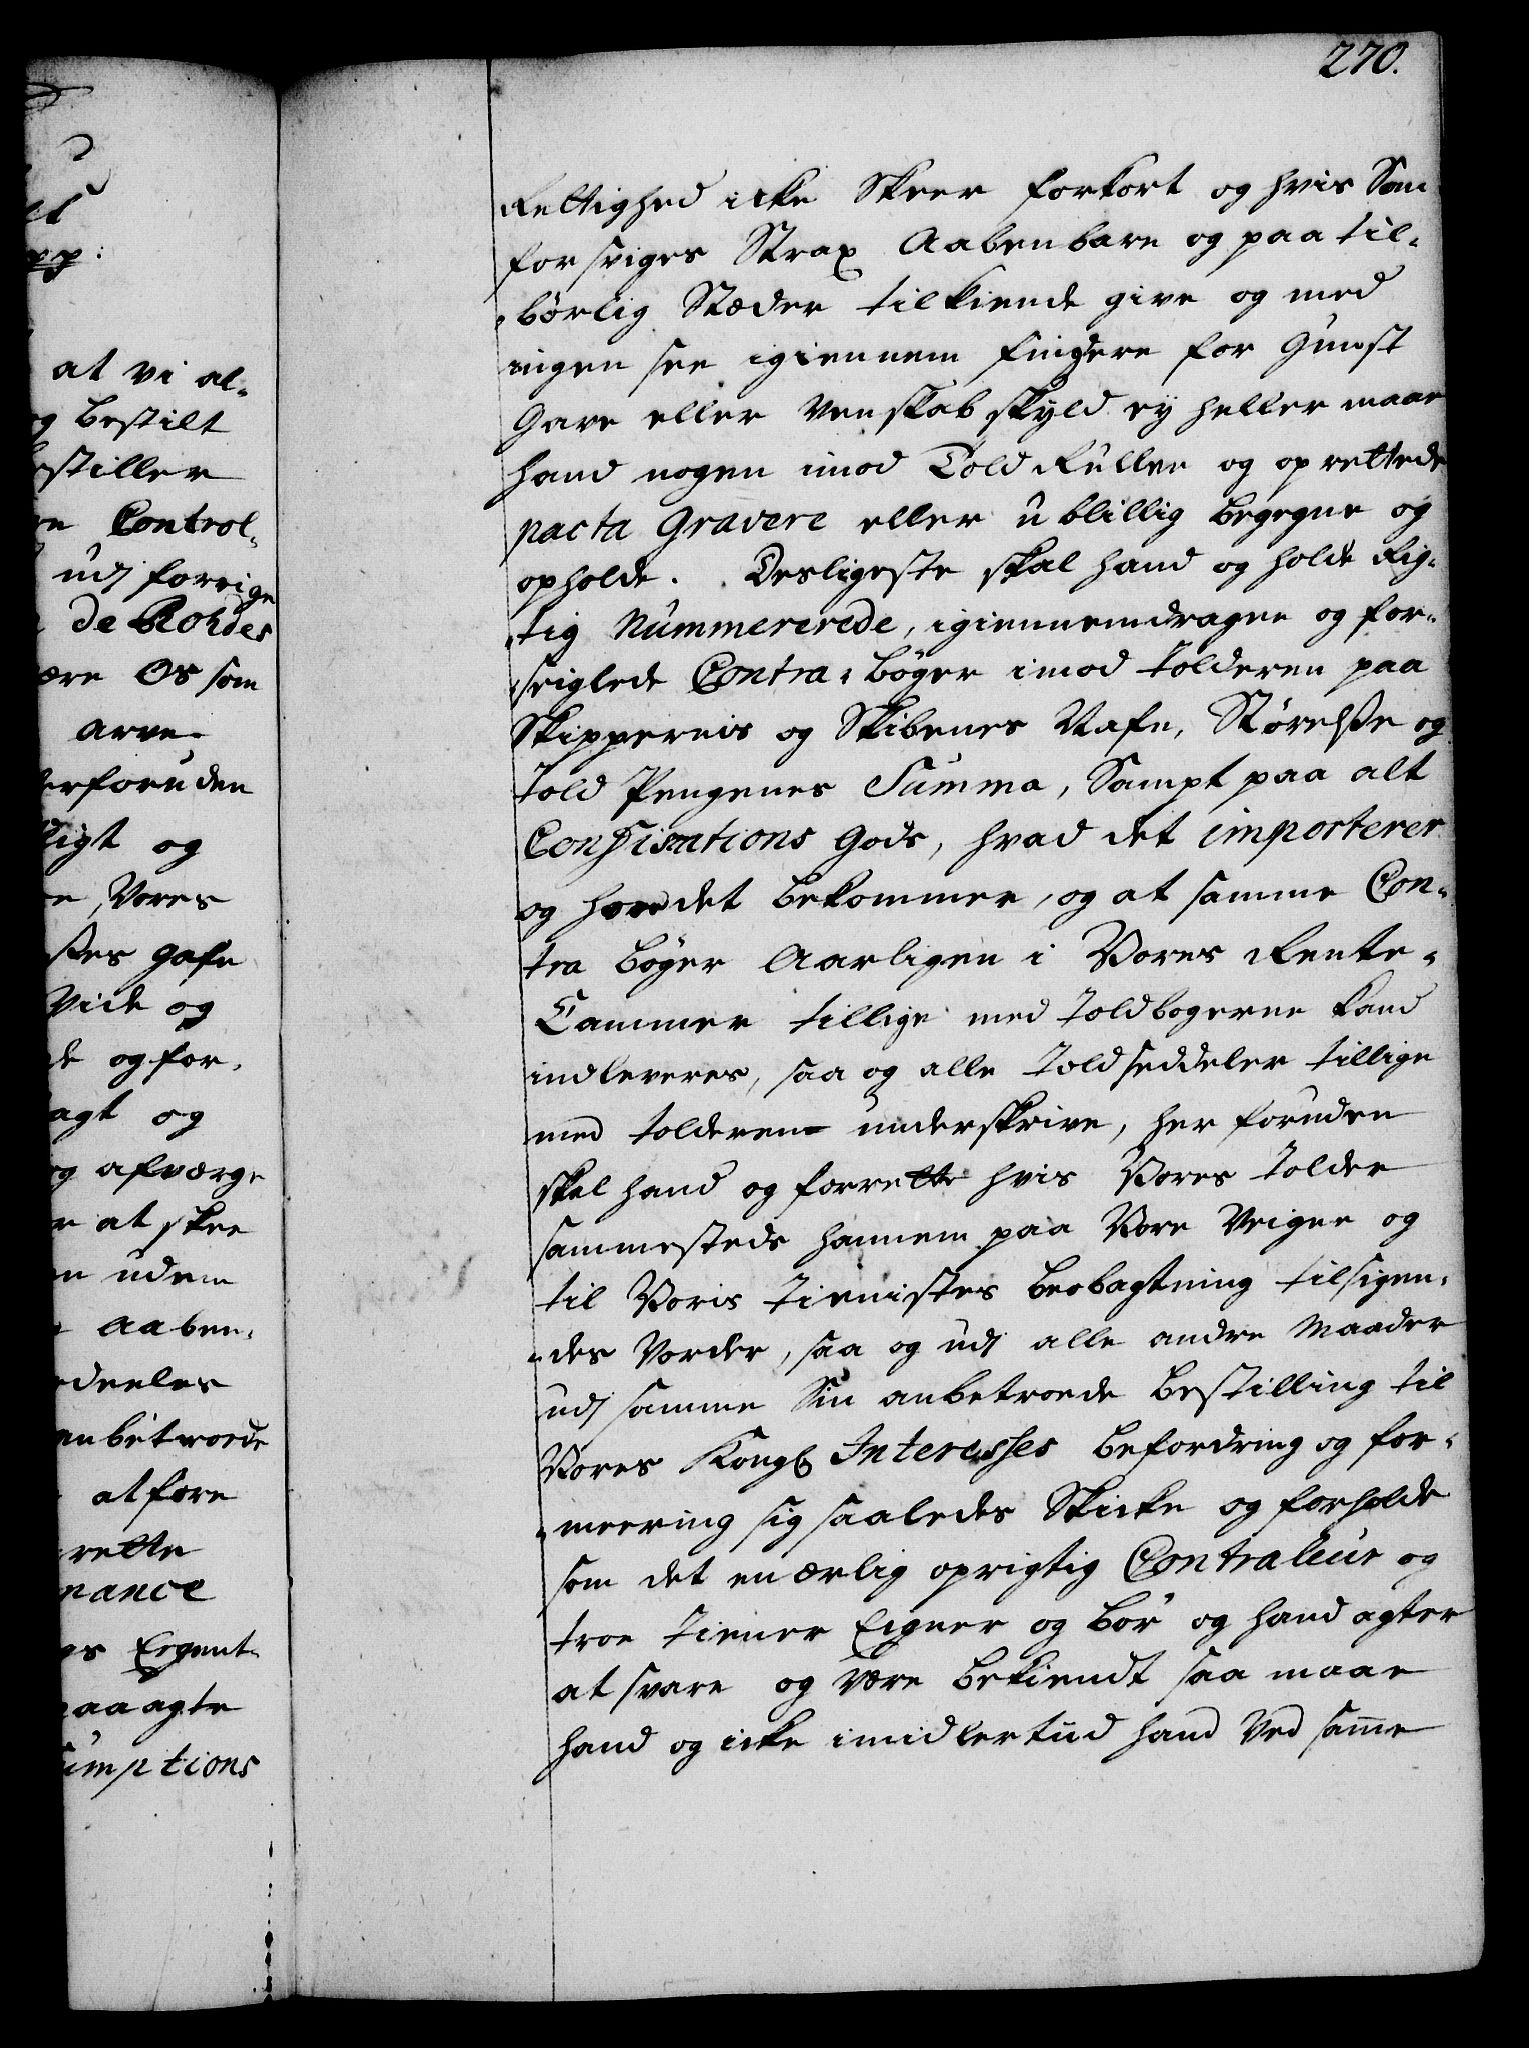 270.
at vi al-
og bestilt
bestiller
Control-
udj forrige
de Rohdes
være Os som
arve
derforuden
ligt og
Vores
Vide og
de og for-
agt og
og afværge
at skee
uden
Aaben-
anbetroede
at fore
rette
nance
Eegent-
paaagte
umptions
Rettighed icke Skeer forkort og hvis Som
forsviges Strax Aabenbare og paa til-
børlig Stæder tilkiende give og med
ingen see igiennem fingere for Gunst
Gave eller Venskab skyld ey heller maae
hand nogen imod Told Rullen og oprettede
pacta Gravere eller ublillig begegne og
opholde. Desligeste skal hand og holde Rig-
tig Nummererede, igiennemdragne og for-
seiglede Contra-bøger imod tolderen paa
Skippernis og Skibenes Nafn, Størelse og
Told Pengenes Summa, Sampt paa alt
Confiscations Gods, hvad det importerer
og hvor det bekommer, og at samme Con-
tra bøger Aarligen i Vores Rente-
Cammer tillige med toldbogerne kand
indleveres, saa og alle Toldseddeler tillige
med tolderen underskrive, her foruden
skal hand og forrette hvis Vores tolder
sammesteds hannem paa Vore Veigne og
til Voris tienistes beobagtning tilsigen-
des Vorder, saa og udj alle andre Maader
udj samme Sin anbetroede bestilling til
Vores Kongl Interesses befordring og for-
meering sig saaledes Skicke og forholde
som det en ærlig oprigtig Contraleur og
troe tiener Eigner og bør og hand agter
at svare og være bekiendt saa maae
hand og icke imidlertiid hand Ved samme